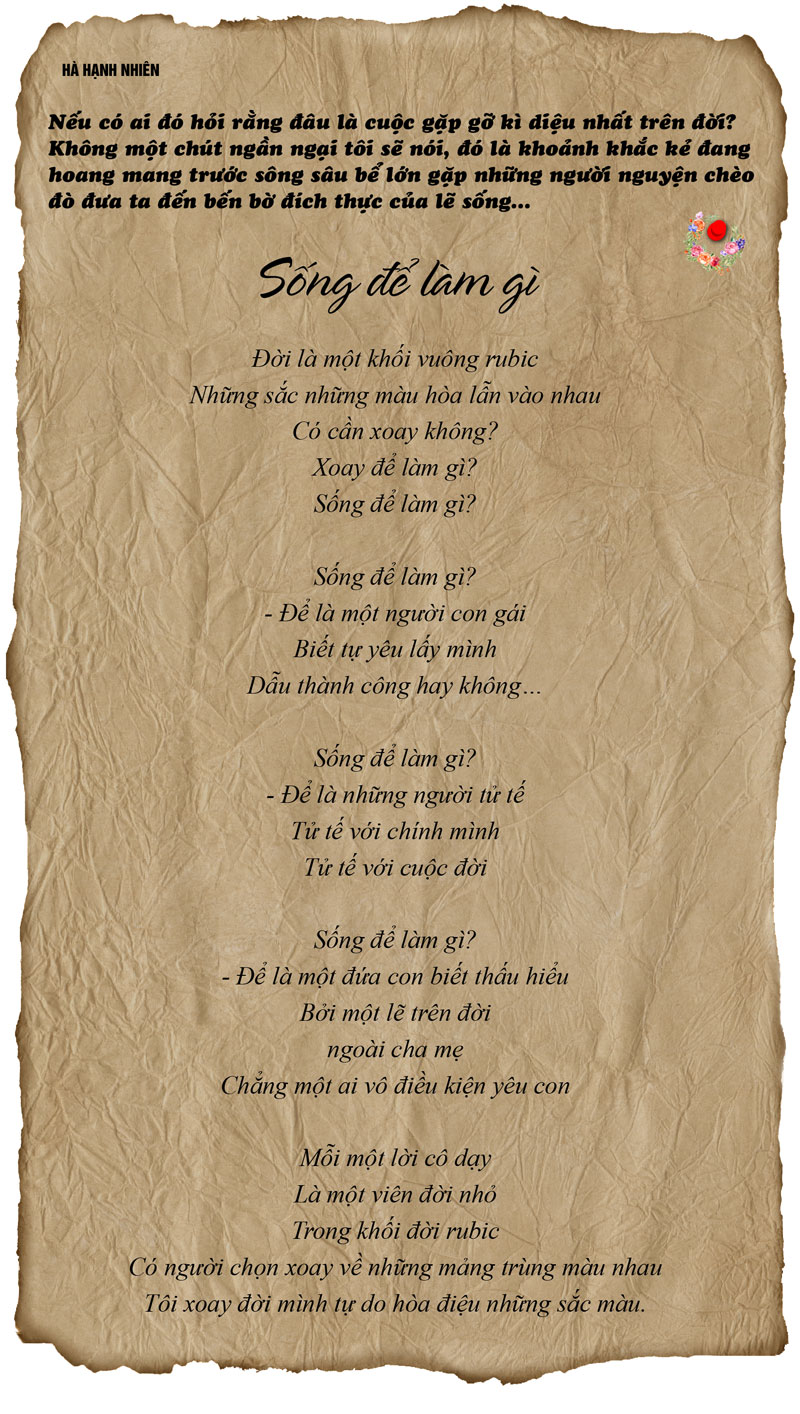 HÀ HẠNH NHIÊN
Nếu có ai đó hỏi rằng đâu là cuộc gặp gỡ kì diệu nhất trên đời?
Không một chút ngần ngại tôi sẽ nói, đó là khoảnh khắc kẻ đang
hoang mang trước sông sâu bể lớn gặp những người nguyện chèo
đò đưa ta đến bến bờ đích thực của lẽ sống...
Sống để làm gì
Đời là một khối vuông rubic
Những sắc những màu hòa lẫn vào nhau
Có cần xoay không?
Xoay để làm gì?
Sống để làm gì?
Sống để làm gì?
- Để là một người con gái
Biết tự yêu lấy mình
Dẫu thành công hay không...
Sống để làm gì?
- Để là những người tử tế
Tử tế với chính mình
Tử tế với cuộc đời
Sống để làm gì?
- Để là một đứa con biết thấu hiểu
Bởi một lẽ trên đời
ngoài cha mẹ
Chẳng một ai vô điều kiện yêu con
Mỗi một lời cô dạy
Là một viên đời nhỏ
Trong khối đời rubic
Có người chọn xoay về những mảng trùng màu nhau
Tôi xoay đời mình tự do hòa điệu những sắc màu.